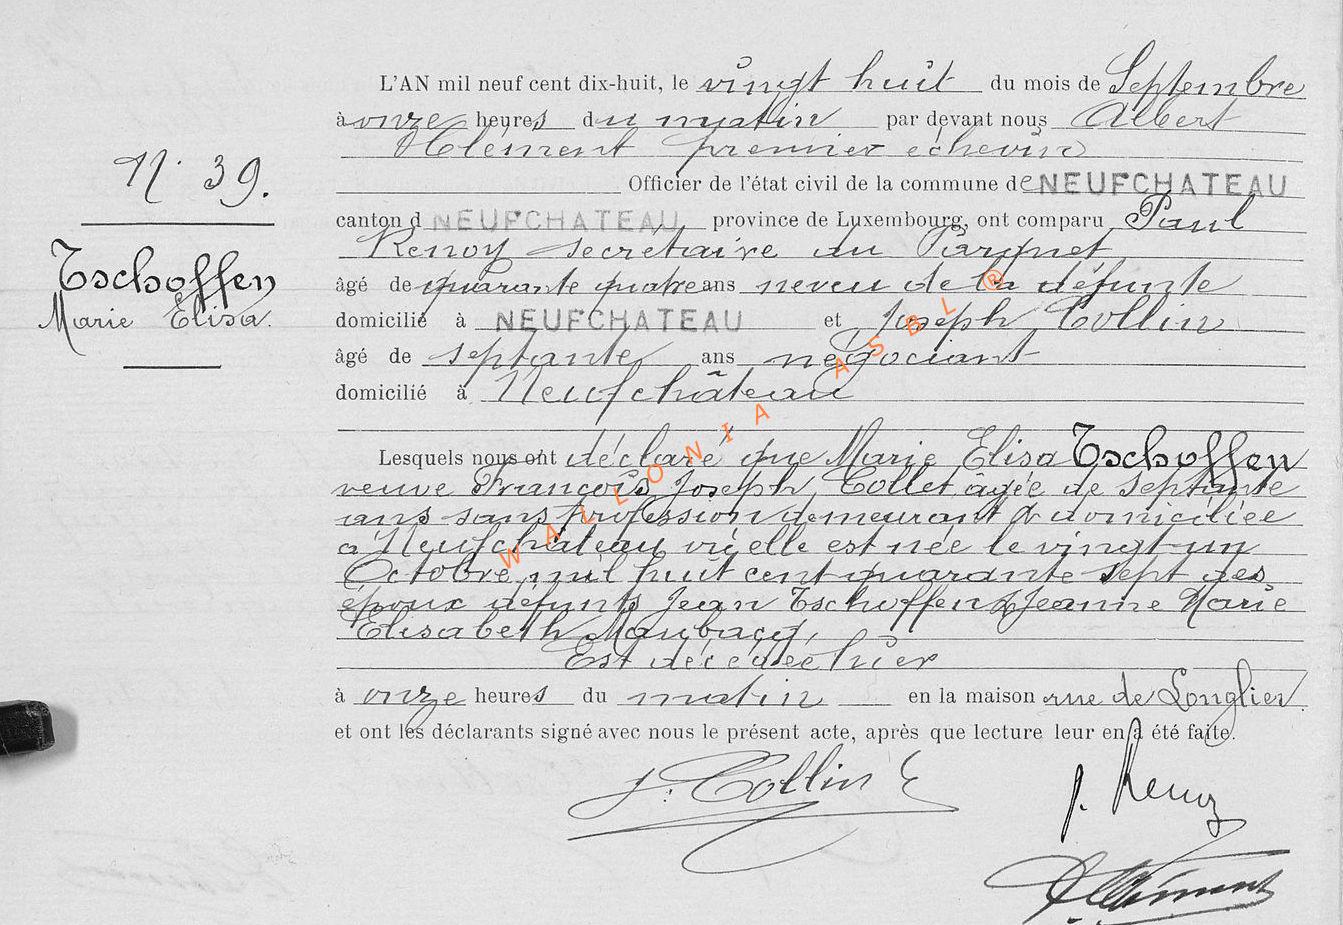 L'AN mil neuf cent dix-huit, le vingt huit du mois de Septembre
à onze heures du matin par devant nous Albert
Clément premier échevin
N° 39.
Officier de l'état civil de la commune de NEUFCHATEAU
canton d NEUFCHATEAU province de Luxembourg, ont comparu Paul
Renoy secrétaire du Parquet
Tschoffen
Marie Elisa.
âgé de quarante quatre ans neveu de la défunte
domicilié à NEUFCHATEAU et Joseph Collin
âgé de septante ans négociant
domicilié à Neufchâteau
Lesquels nous ont déclaré que Marie Elisa Tschoffen
veuve François Joseph Collet âgée de septante
ans sans profession demeurant & domiciliée
à Neufchâteau où elle est née le vingt-un
Octobre mil huit cent quarante sept des
époux défunts Jean Tschoffen & Jeanne Marie
Elisabeth
Est décédée hier
à onze heures du matin en la maison rue de Longlier.
et ont les déclarants signé avec nous le présent acte, après que lecture leur en a été faite.
J. Collin
P. Renoy
Clément
WALLONIA ASBL ®